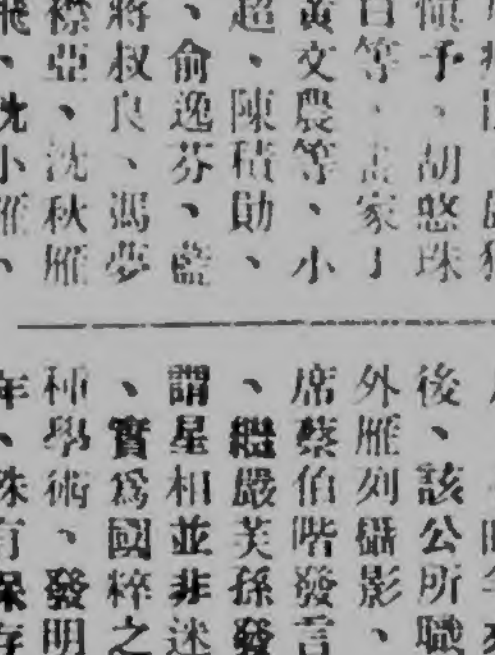 傾予、胡悠珠
百等、畫家丁
黃文農等、小
超、陳積勛、
、俞逸芬、藍
蔣叔良、馮夢
襟亞、沈秋雁
飛、沈小雁、
後、該公所職
外雁列攝影、
席蔡伯階發言
、繼嚴芙孫發
謂星相並非迷
、實爲國粹之
種學術、發明
年、殊有保存